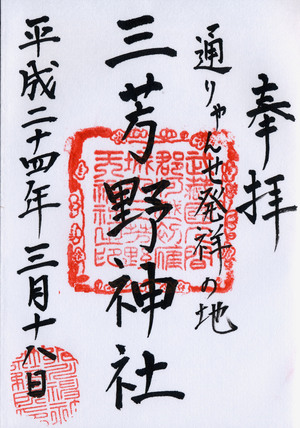 奉拝
通りゃんせ発祥の地
三芳野神社
平成二十四年三月十八日